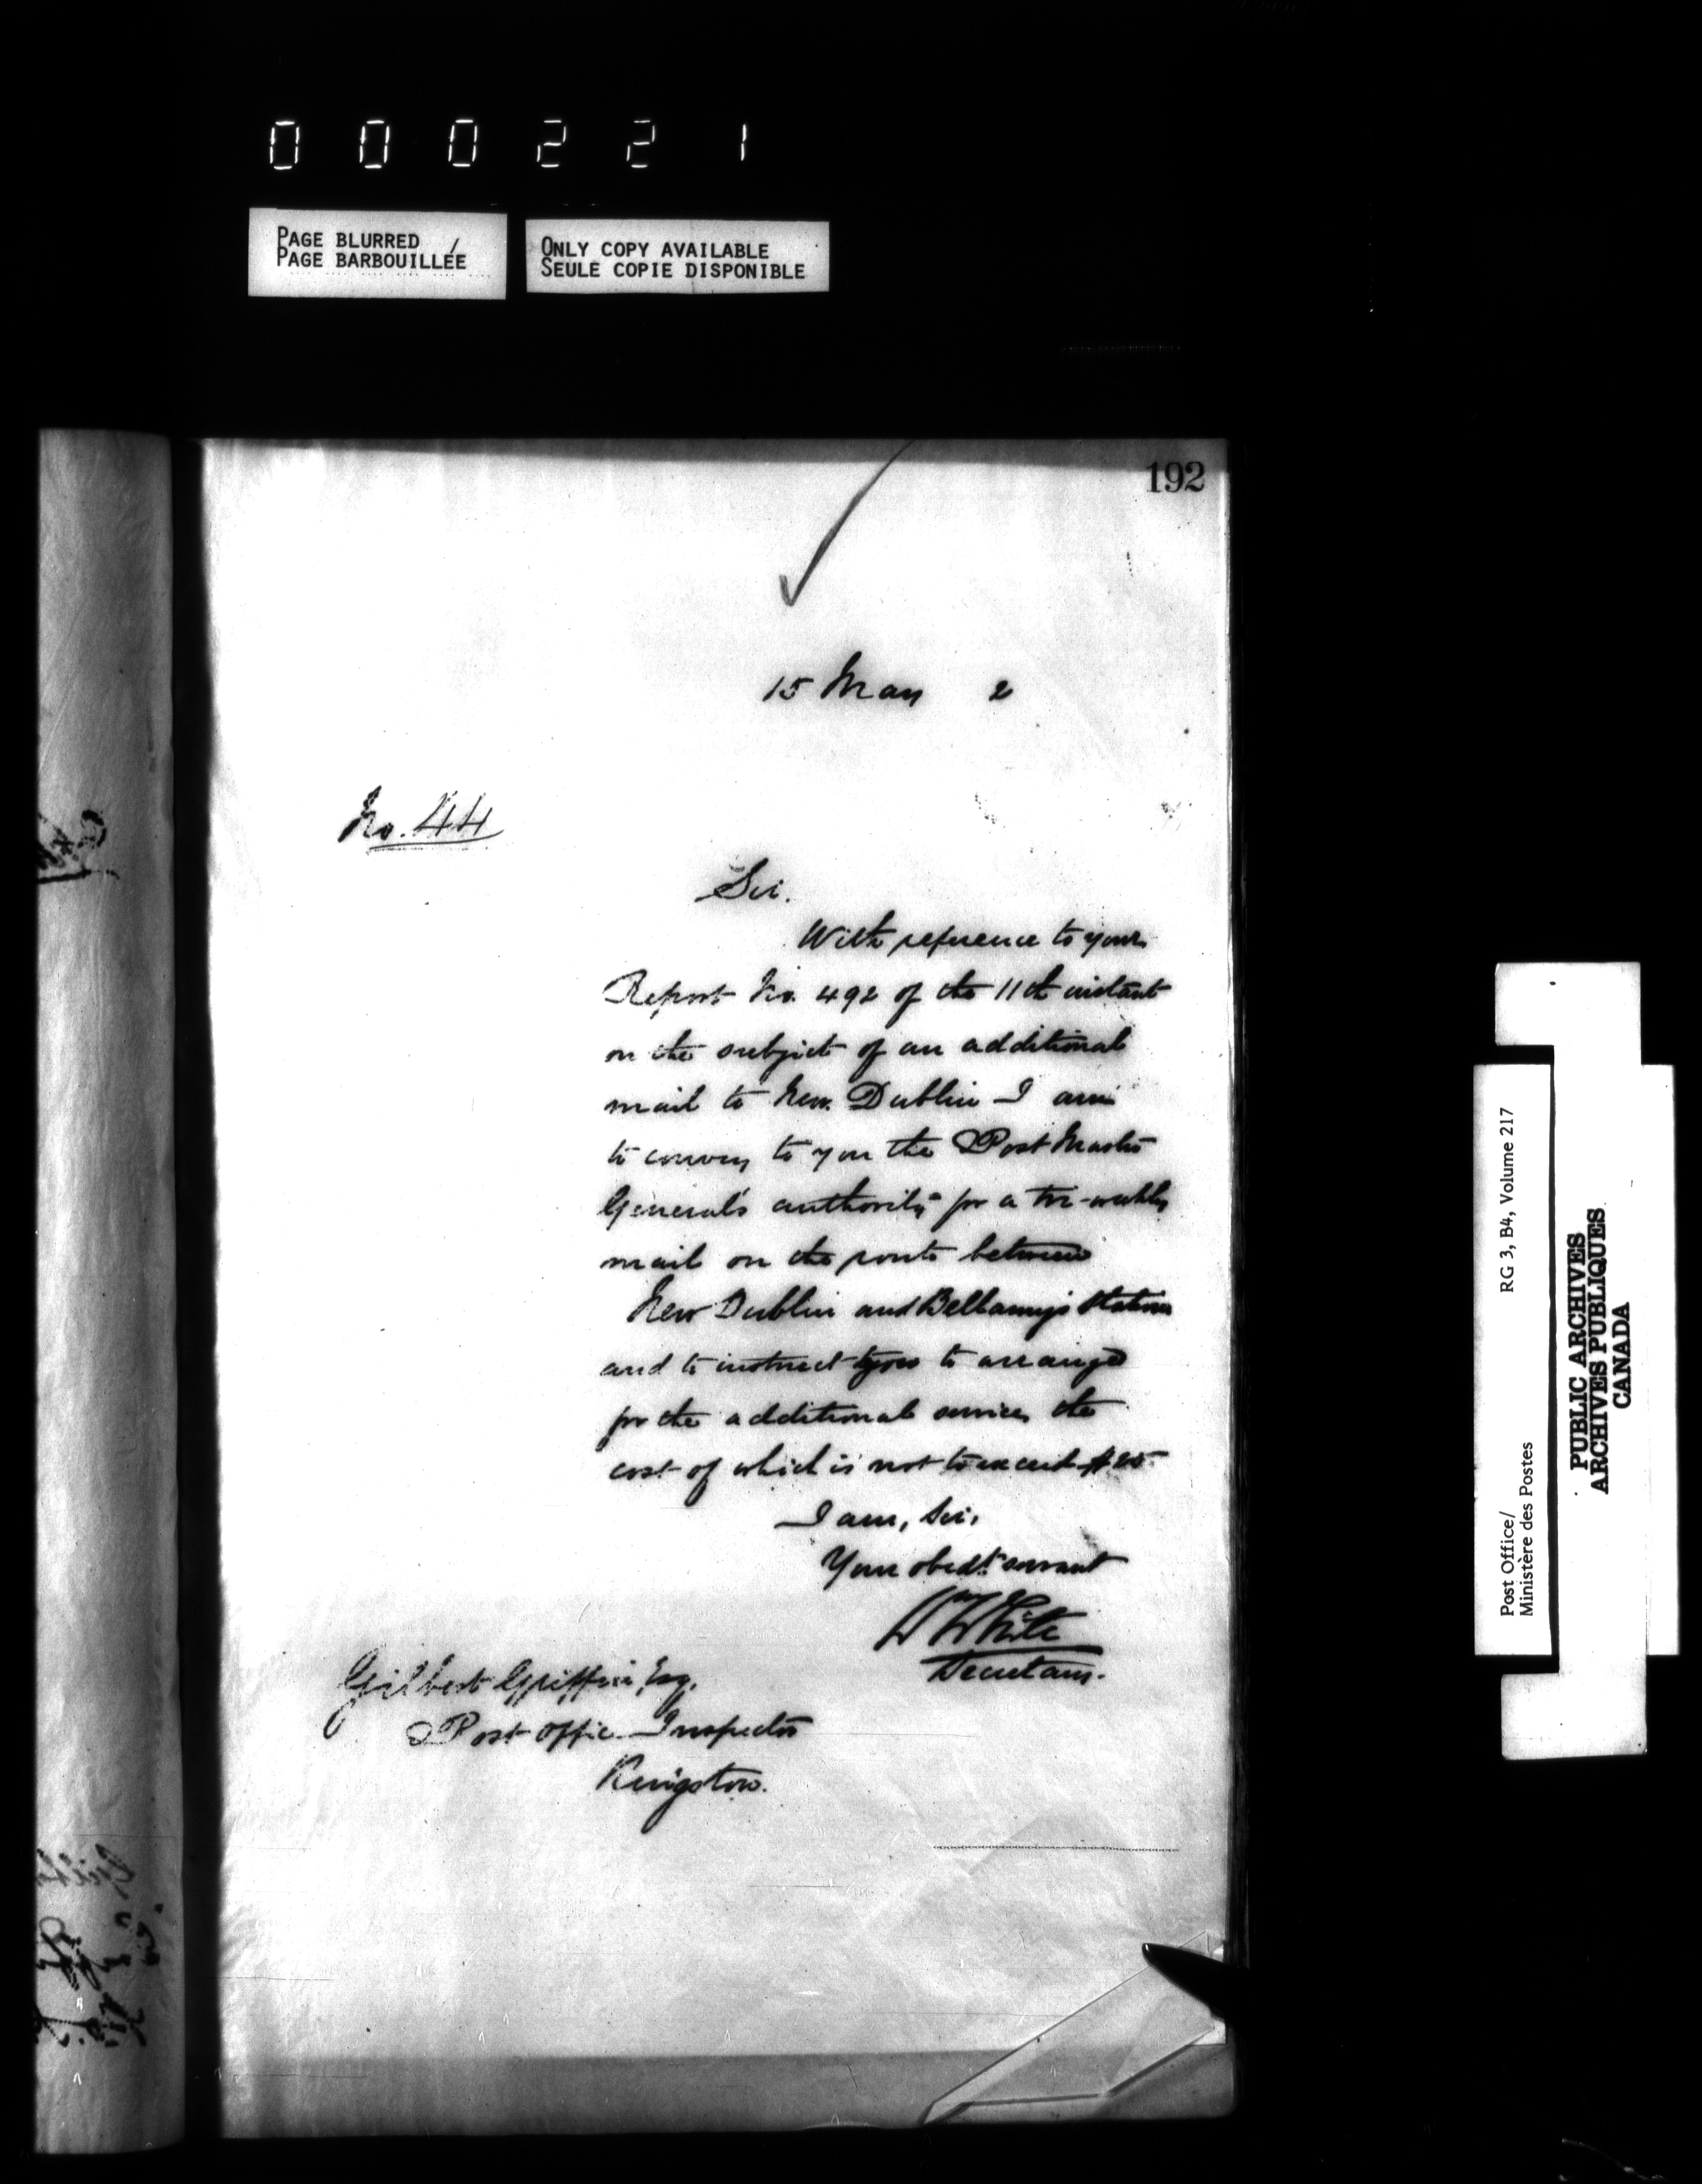 000221
PAGE BLURRED /
PAGE BARBOUILLÉE
ONLY COPY AVAILABLE
SEULE COPIE DISPONIBLE
192
15 May 2
No. 44
Sir.
With reference to your
Report No. 492 of the 11th instant
on the subject of an additional
mail to New Dublin I am
to convey to you the Post Master
General's authority for a tri-weekly
mail on the route between
New Dublin and Bellamy's Station
and to instruct you to arrange
for the additional service, the
cost of which is not to exceed
I am, Sir,
Your obedt. servant
Wm White
Secretary.
Gilbert Griffin Esq.
Post Office Inspector
Kingston.
RG 3, B4, Volume 217
Post Office/
Ministère des Postes
PUBLIC ARCHIVES
ARCHIVES PUBLIQUES
CANADA